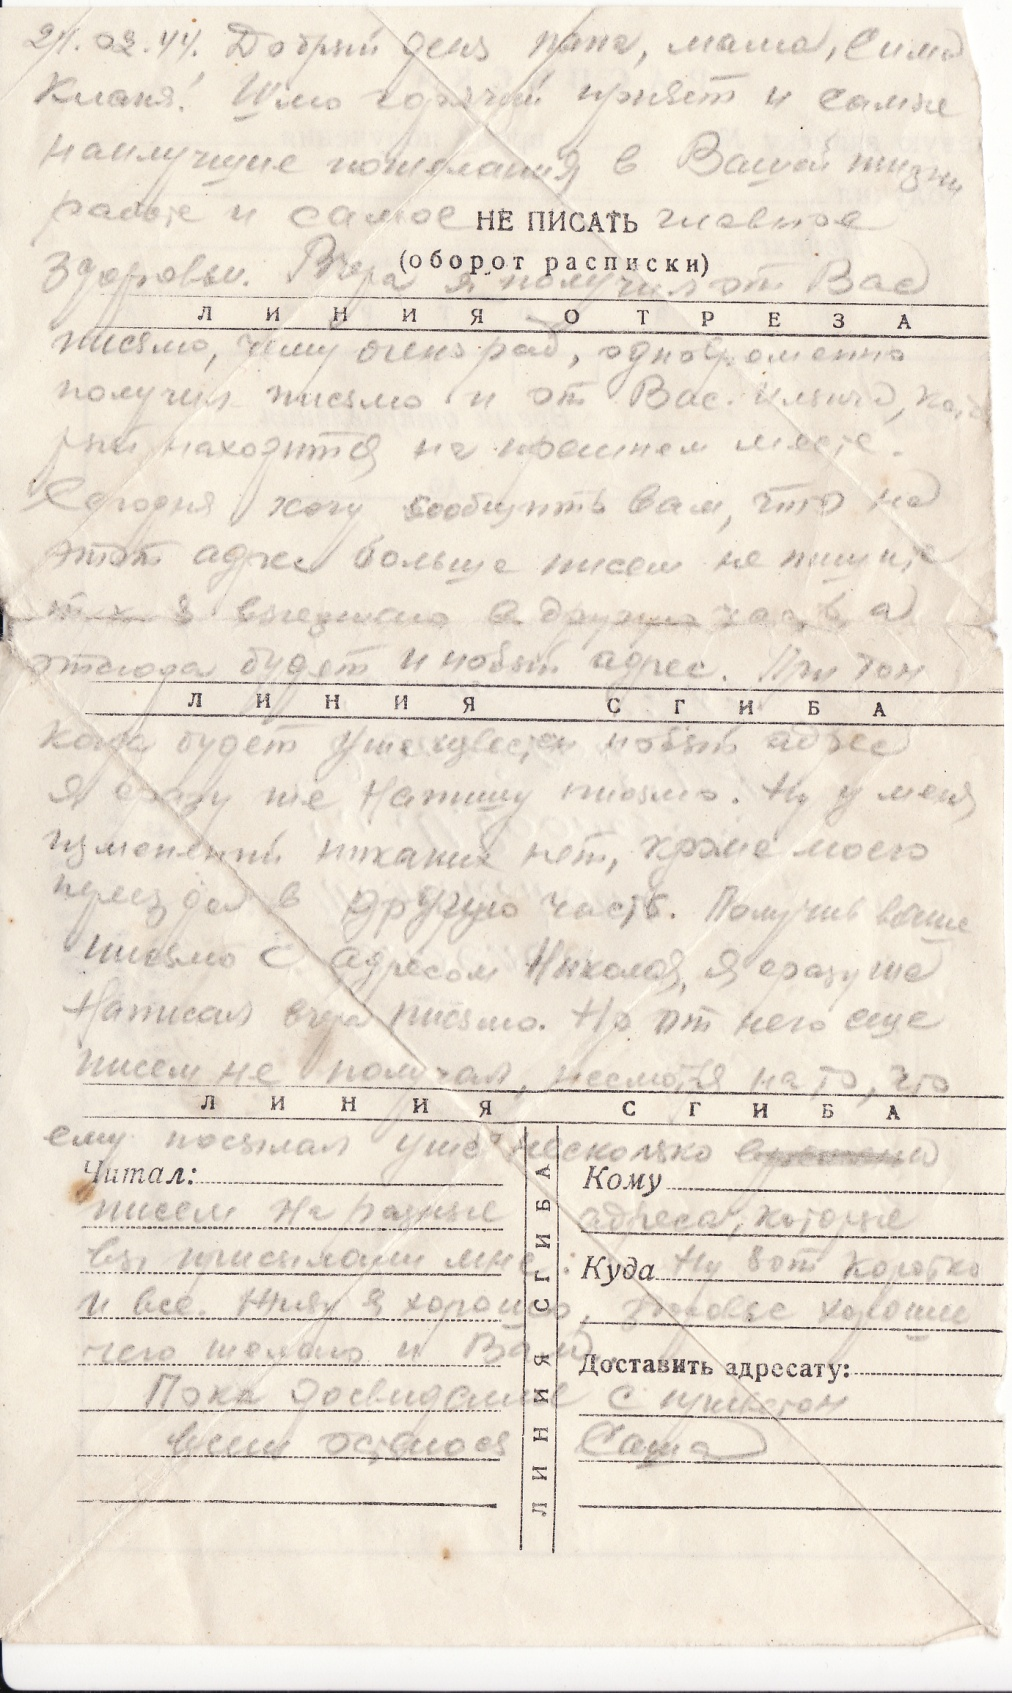 24.02.44. Добрый день папа, мама, Сима
Кланя! Шлю горячий привет и самые
наилучшие пожелания в Вашей жизни
работе и самое главное
НЕ ПИСАТЬ
(оборот расписки)
здоровьи. Вчера я получил от Вас
ЛИНИЯ ОТРЕЗА
письмо, чему очень рад, одновременно
получил письмо и от Вас. Ильича, кото
рый находится на прежнем месте.
Сегодня хочу сообщить вам, что на
этот адрес больше писем не пишите
т.к. я выезжаю в другую часть, а
оттогода будет и новый адрес. При том
ЛИНИЯ СГИБА
когда будет уже известен новый адрес
Я сразу же напишу письмо. Ну у меня
изменений никаких нет, кроме моего
переезда в другую часть. Получив ваше
письмо с адресом Николая, я сразу же
Написал вчера письмо. Но от него еще
писем не получал, несмотря на то, что
ЛИНИЯ СГИБА
ему посылал уже несколько
Читал:
Кому
писем на разные адреса, которые
вы присылали мне. Ну вот коротко
Куда
и все. Живу я хорошо, здоровье хорошее
чего желаю и Вам.
Доставить адресату:
Пока досвидания с приветом
ваш остаюсь Саша
ЛИНИЯ СГИБА